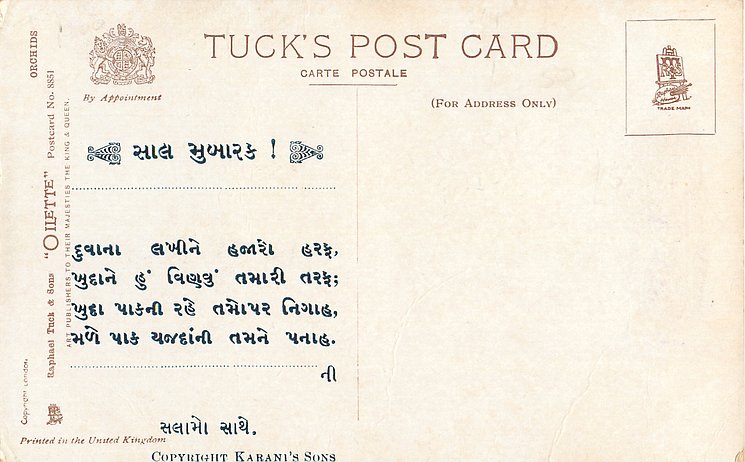 TUCK'S POST CARD
CARTE POSTALE
By Appointment
(FOR ADDRESS ONLY)
TRADE MARK
ORCHIDS
Raphael Tuck & Sons "OILETTE" Postcard No. 8851
ART PUBLISHERS TO THEIR MAJESTIES THE KING & QUEEN.
Copyright London.
સાલ મુબારક !
દુવાના લખીને હજારો હરફ,
ખુદાને હું વિણવું તમારી તરફ;
ખુદા પાકની રહે તમોપર નિગાહ,
મળે પાક યજદાંની તમને પનાહ.
ની
સલામો સાથે.
Printed in the United Kingdom
COPYRIGHT KARANI'S SONS